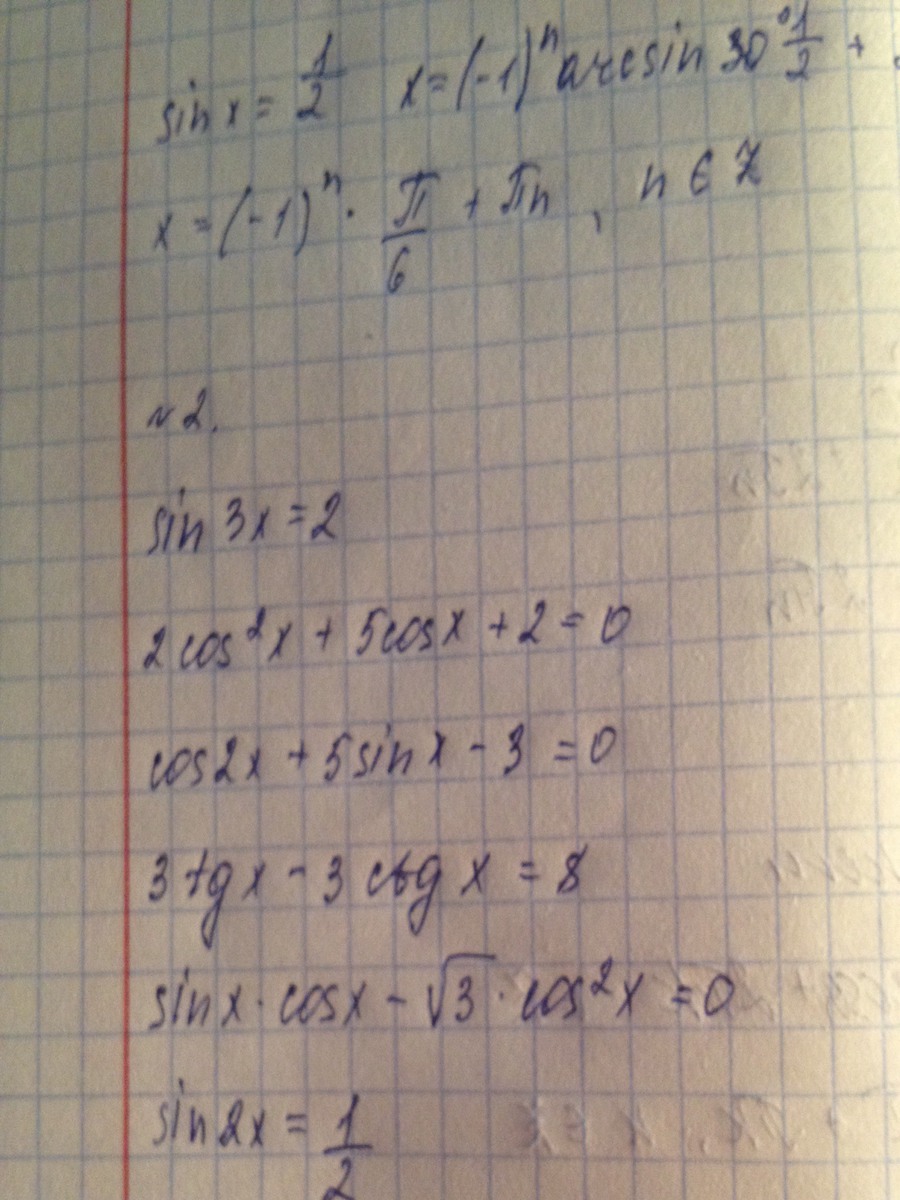 sin x = 1/2 x = (-1)ⁿ arcsin 30° 1/2 +
x = (-1)ⁿ · π/6 + πn , n ∈ Z
№ 2.
sin 3x = 2
2 cos²x + 5cosx + 2 = 0
cos2x + 5sinx - 3 = 0
3 tg x - 3 ctg x = 8
sinx · cosx - √3 · cos²x = 0
sin2x = 1/2